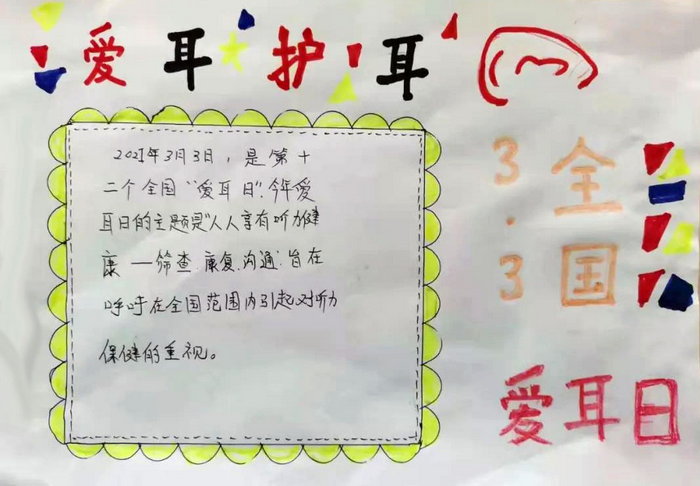 爱耳护耳
2021年3月3日，是第十
二个全国“爱耳日”，今年爱
耳日的主题是“人人享有听力健
康——筛查.康复.沟通”.旨在
呼吁在全国范围内引起对听力
保健的重视。
3.3
全国
爱耳日